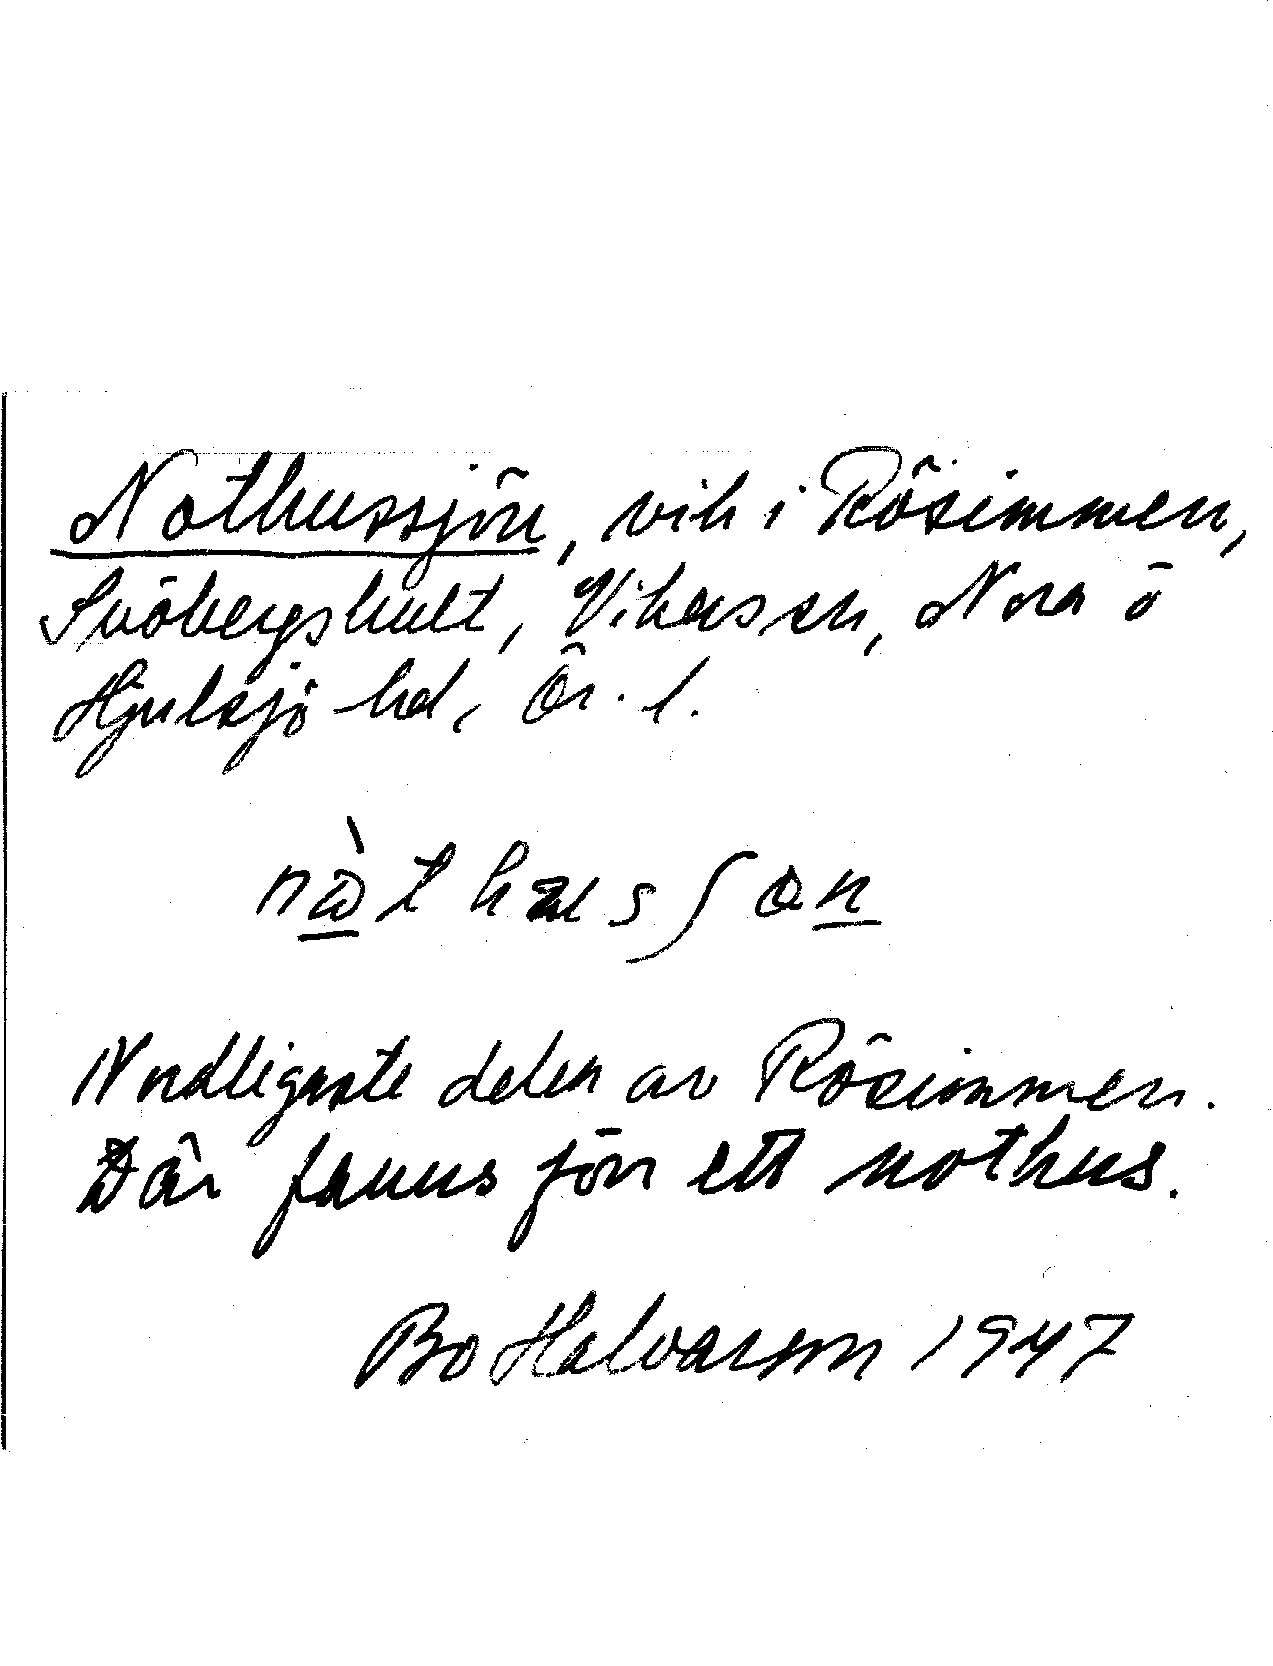 Nothussjön, vik i Rösimmen,
Svöbergshult, Vikersvn, Nora o
Hjulsjö hd, Ör. l.
nὼt hʉsʃọn
Nordligaste delen av Rösimmen.
Där fanns förr ett nothus.
Bo Halvarson 1947